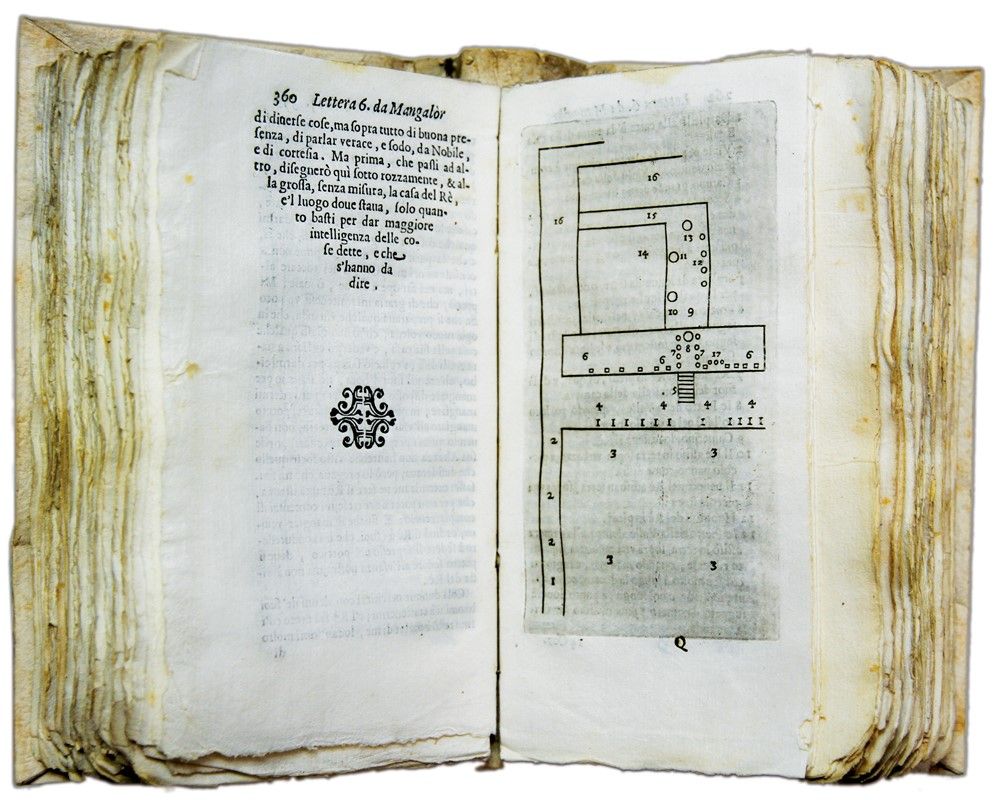 360 Lettera 6. da Mangalòr
di diuerse cose, ma sopra tutto di buona pre-
senza, di parlar verace, e sodo, da Nobile,
e di cortesia. Ma prima, che passi ad al-
tro, disegnerò quì sotto rozzamente, & al-
la grossa, senza misura, la casa del Rè,
e'l luogo doue staua, solo quan-
to basti per dar maggiore
intelligenza delle co-
se dette, e che
s'hanno da
dire.
16
15
16
13
14
11
12
10 9
8
7 7
6 6 17 6
5
4 4 4 4
2
3 3
2
2
3 3
1
Q